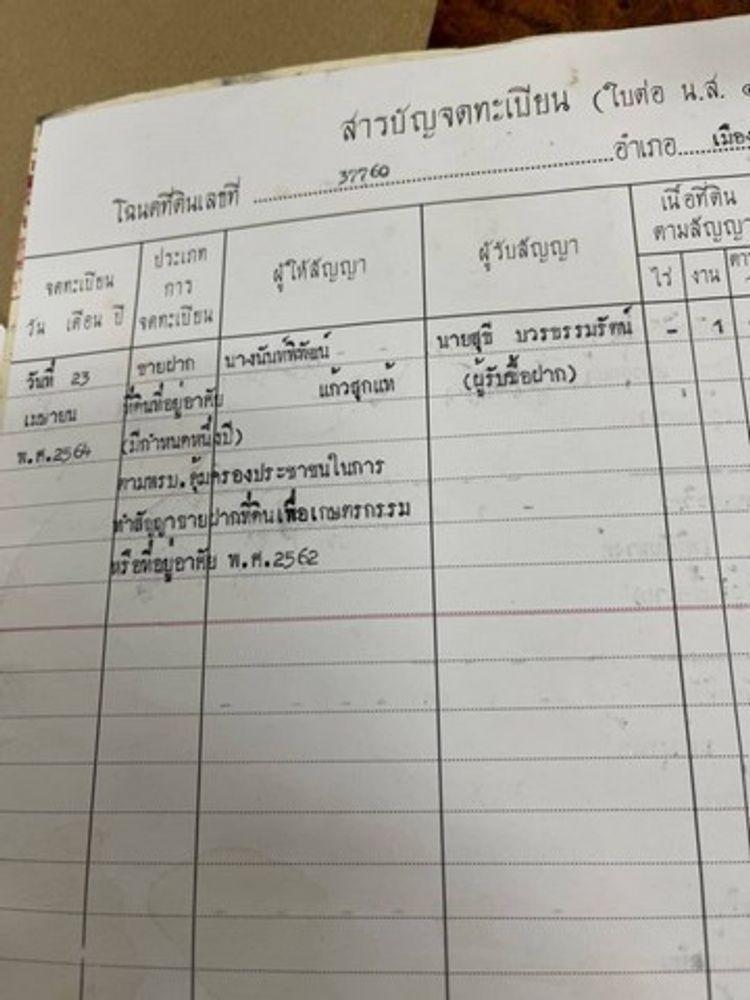 สารบัญจดทะเบียน (ใบต่อ น.ส.
โฉนดที่ดินเลขที่ 37760 อำเภอ เมือง
จดทะเบียน
วัน เดือน ปี
ประเภท
การ
จดทะเบียน
ผู้ให้สัญญา
ผู้รับสัญญา
เนื้อที่ดิน
ตามสัญญา
ไร่ งาน
วันที่ 23
เมษายน
พ.ศ.2564
ขายฝาก
ที่ดินที่อยู่อาศัย
(มีกำหนดหนึ่งปี)
ตามพรบ.คุ้มครองประชาชนในการ
ทำสัญญาขายฝากที่ดินเพื่อเกษตรกรรม
หรือที่อยู่อาศัย พ.ศ.2562
นางนันท์พิพัฒน์
แก้วสุกแท้
นายสุธี บวรธรรมรัตน์
(ผู้รับซื้อฝาก)
- 1